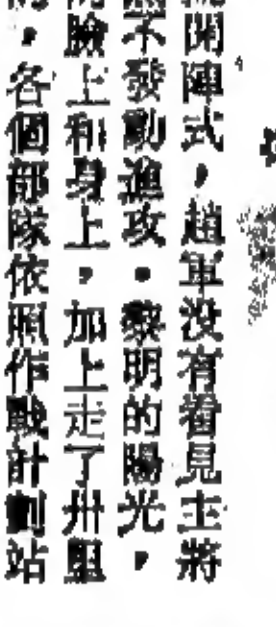 開陣式，趙軍沒有看見主將
不發動進攻．黎明的陽光，
臉上和身上，加上走了卅里
，各個部隊依照作戰計劃站